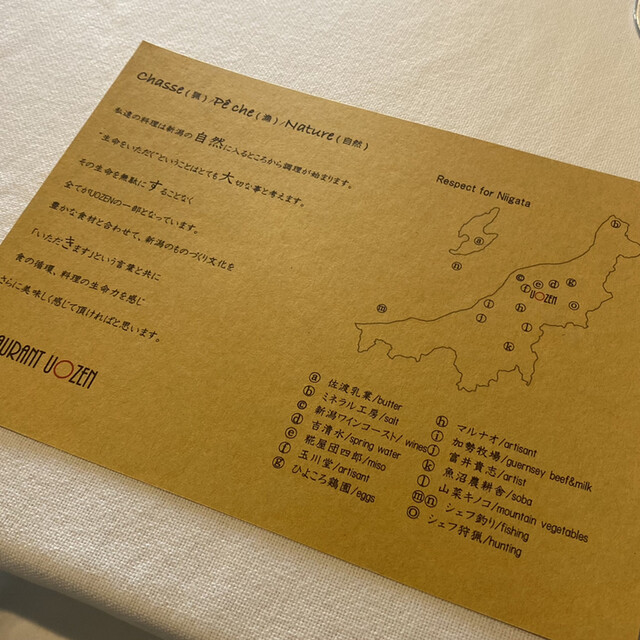 Chasse(猟)/Pêche(漁)/Nature(自然)
私達の料理は新潟の自然に入るところから調理が始まります。
"生命をいただく"ということはとても大切な事と考えます。
その生命を無駄にすることなく
全てがUOZENの一部となっています。
豊かな食材と合わせて、新潟のものづくり文化を
「いただきます」という言葉と共に
食の循環、料理の生命力を感じ
さらに美味しく感じて頂ければと思います。
AURANT UOZEN
Respect for Niigata
b
a
n
c e d g
f
UOZEN
o
m
i h
j l
k
a 佐渡乳業/butter
b ミネラル工房/salt
c 新潟ワインコースト/wines
d 吉清水/spring water
e 糀屋団四郎/miso
f 玉川堂/artisant
g ひよころ鶏園/eggs
h マルナオ/artisant
i 加勢牧場/guernsey beef&milk
j 富井貴志/artist
k 魚沼農耕舎/soba
l 山菜キノコ/mountain vegetables
m n シェフ釣り/fishing
o シェフ狩猟/hunting